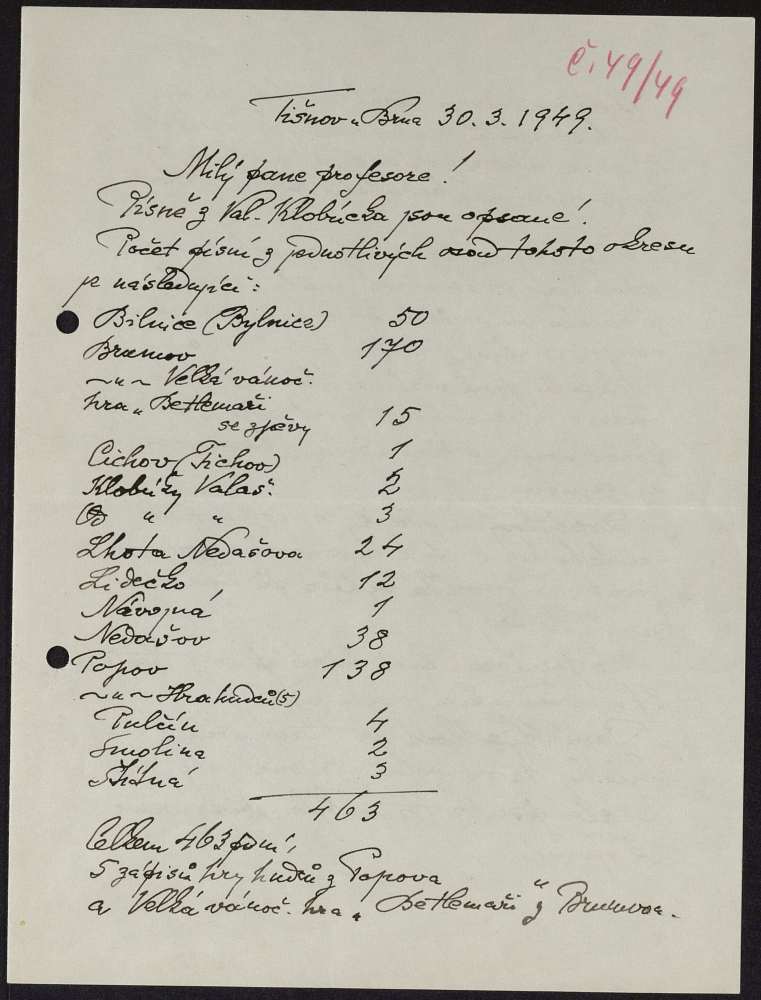 č. 49/49
Tišnov u Brna 30. 3. 1949.
Milý pane profesore!
Písně z Val. Klobúcka jsou opsané!
Počet písní z jednotlivých osad tohoto okresu
je následující:
Bilnice (Bylnice) 50
Brumov 170
~ " ~ Velká vánoč.
hra „Betlemaři
se zpěvy 15
Cichov (Tichov) 1
Klobúky Valaš. 2
" " 3
Lhota Nedašova 24
Lidečko 12
Návojná 1
Nedašov 38
Popov 138
~ " ~ Hra hudců (5)
Pulčín 4
Smolina 2
Štítná 3
463
Celkem 463 písní,
5 zápisů hry hudců z Popova
a Velká vánoč. hra „Betlemaři" z Brumova.